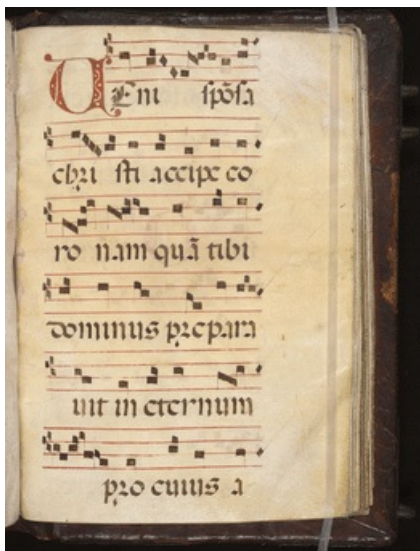 VEni spõsa
chri sti accipe co
ro nam quã tibi
dominus prepara
uit in eternum
pro cuius a